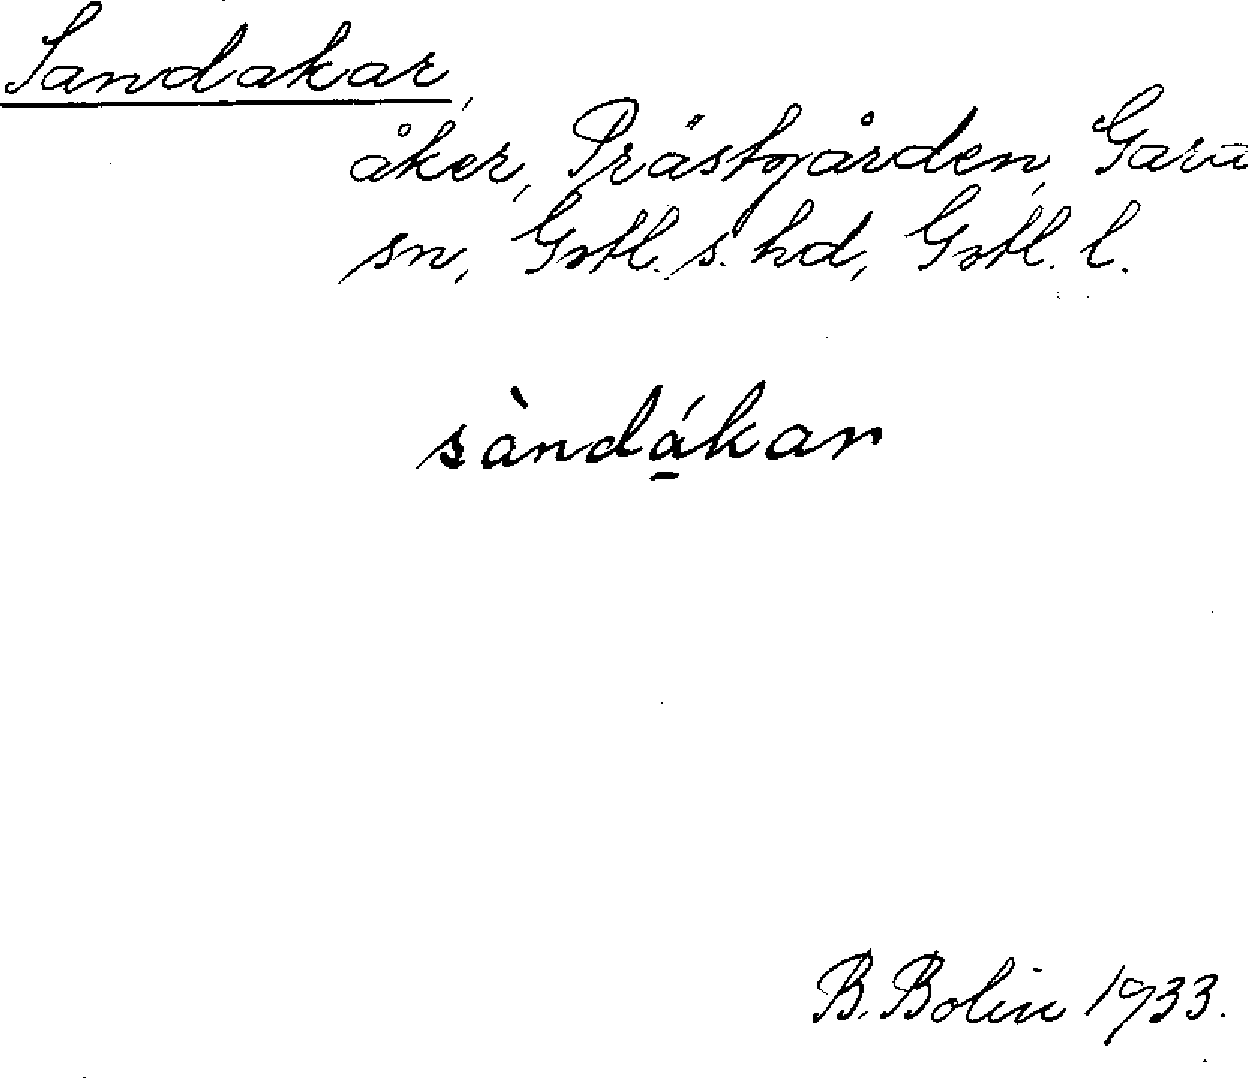 Sandakar,
åker, Prästgården, Garda
sn, Gotl. s. hd, Gotl. l.
sàndá̱kar
B. Bolin 1933.